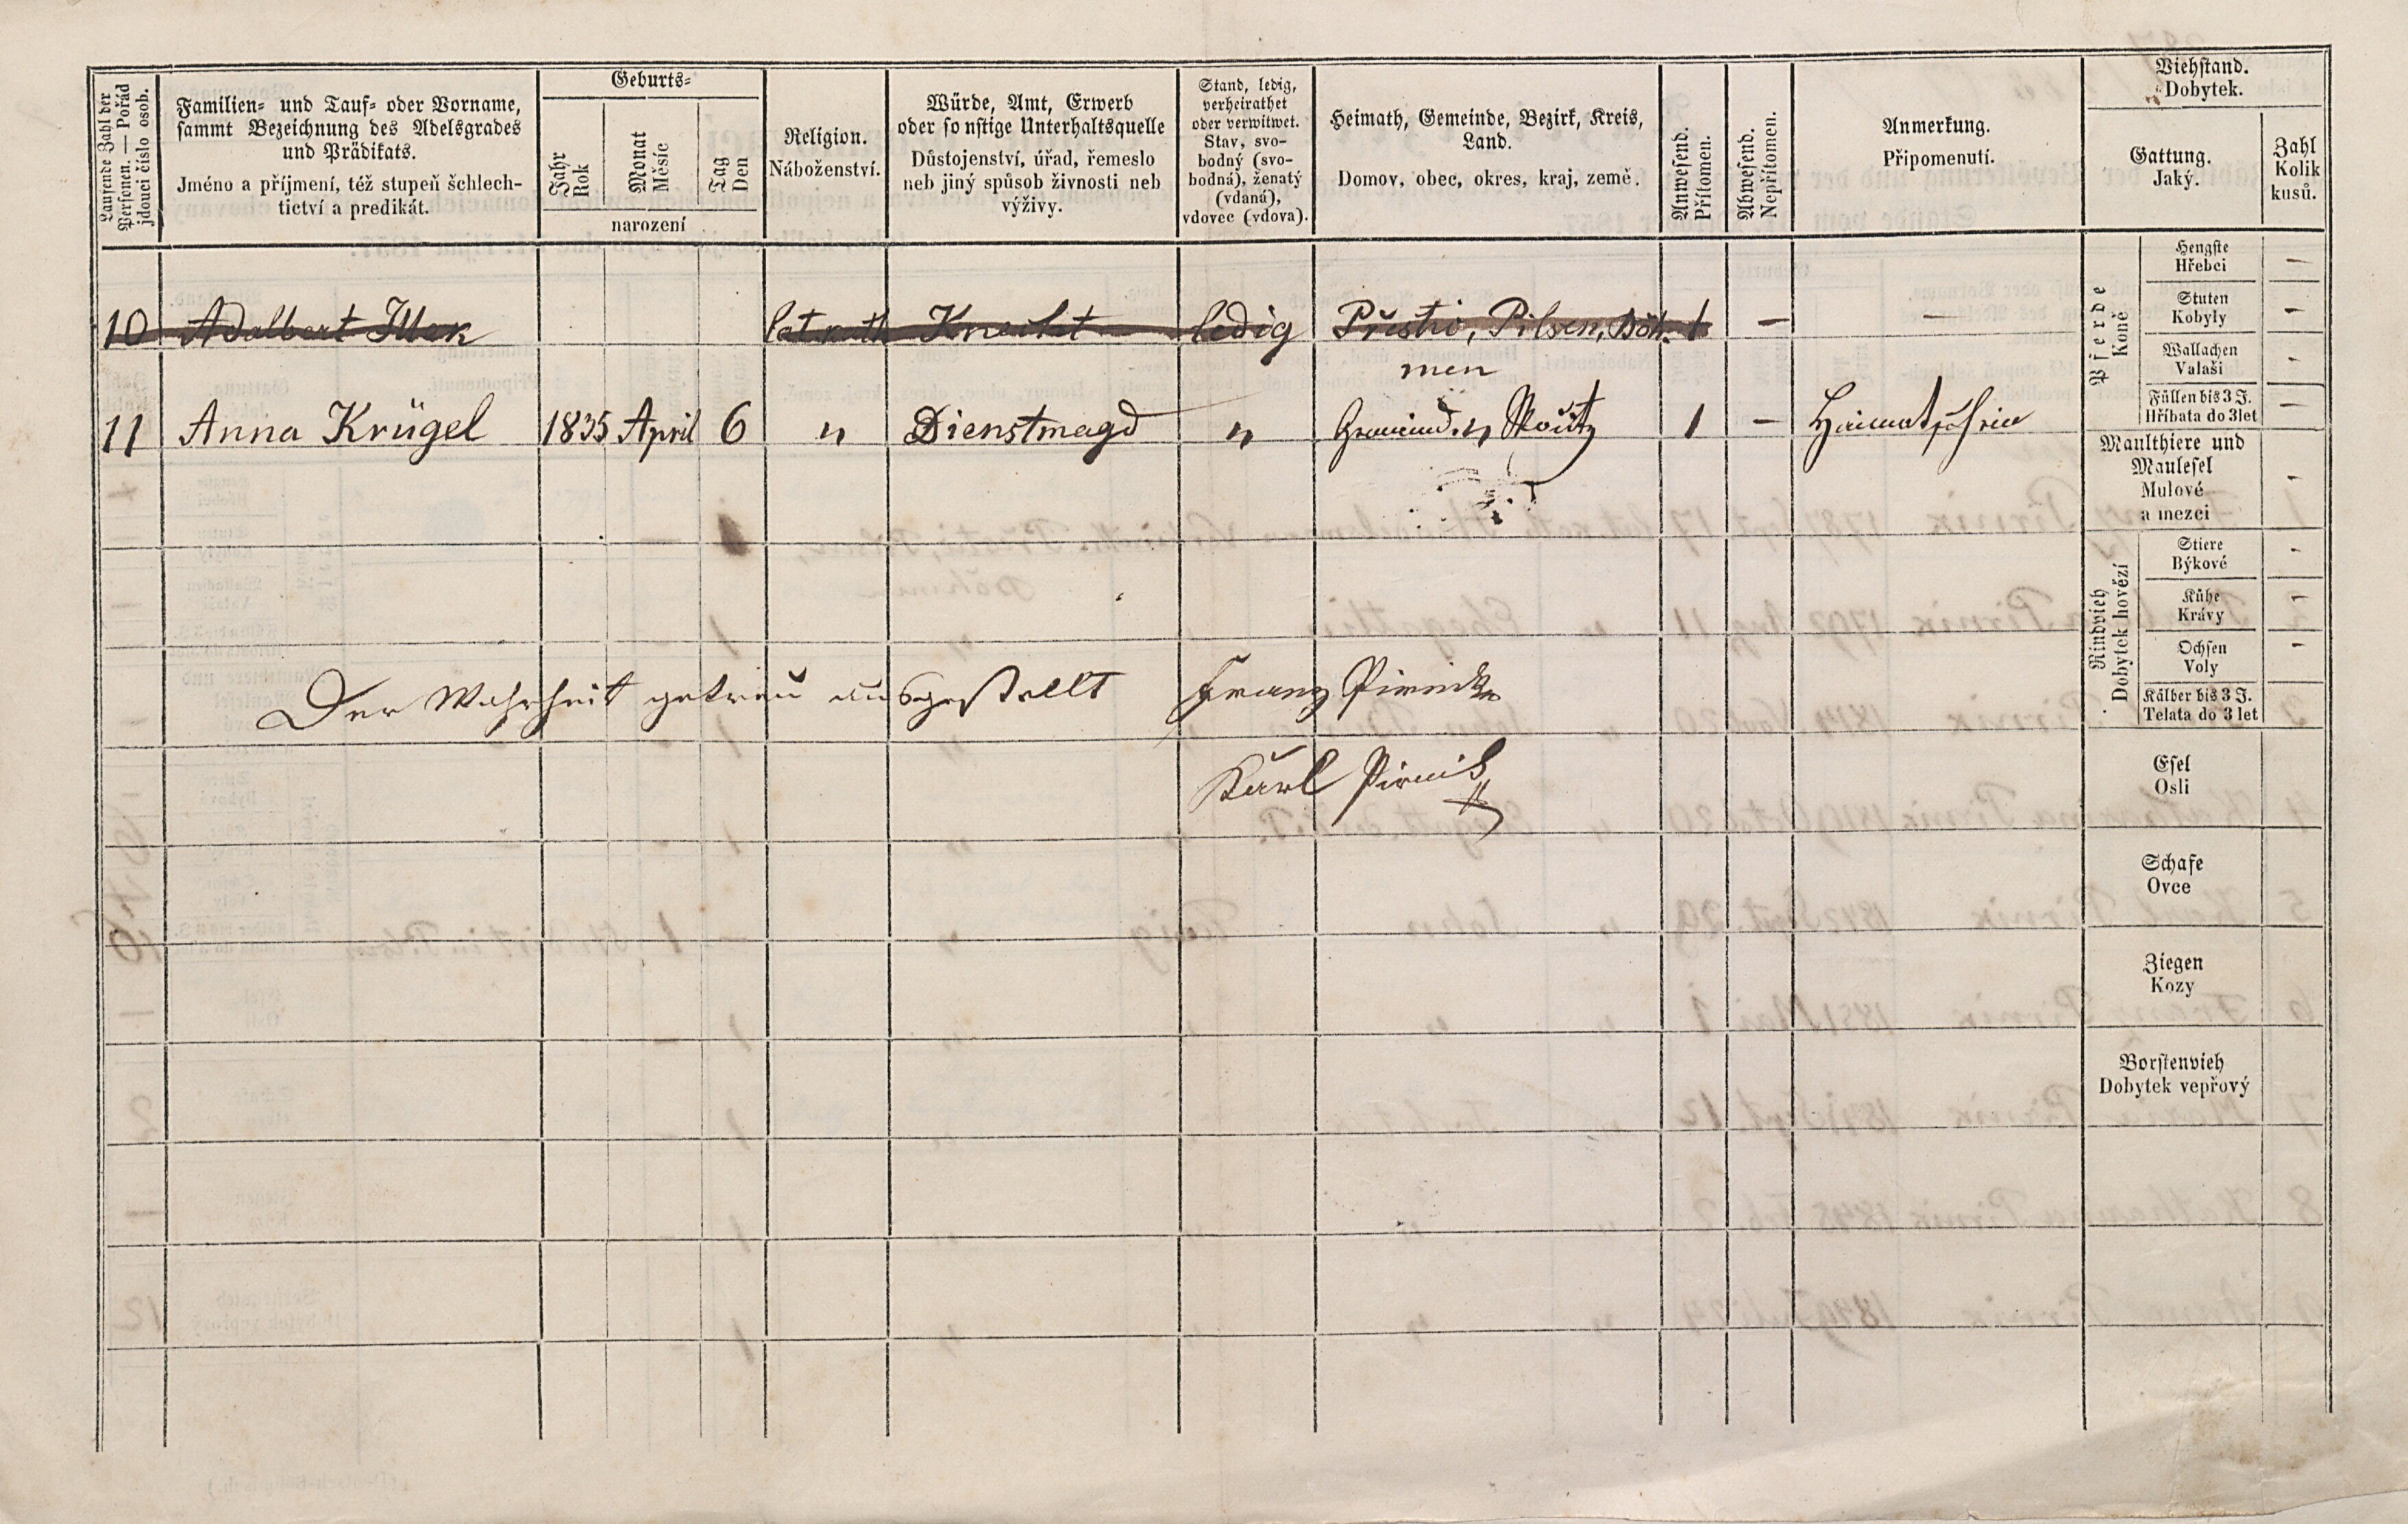 Laufende Zahl der Personen. — Pořád jdoucí číslo osob.
Familien= und Tauf= oder Vorname,
sammt Bezeichnung des Adelsgrades
und Prädikats.
Jméno a příjmení, též stupeň šchlech-
tictví a predikát.
Geburts=
Jahr
Rok
Monat
Měsíc
Tag
Den
narození
Religion.
Náboženství.
Würde, Amt, Erwerb
oder sonstige Unterhaltsquelle
Důstojenství, úřad, řemeslo
neb jiný spůsob živnosti neb
výživy.
Stand, ledig,
verheirathet
oder verwitwet.
Stav, svo-
bodný (svo-
bodná), ženatý
(vdaná),
vdovec (vdova).
Heimath, Gemeinde, Bezirk, Kreis,
Land.
Domov, obec, okres, kraj, země.
Anwesend.
Přítomen.
Abwesend.
Nepřítomen.
Anmerkung.
Připomenutí.
Viehstand.
Dobytek.
Gattung.
Jaký.
Zahl
Kolik
kusů.
10 Adalbert Illek lat kath Knecht ledig Přestic, Pilsen, Böh- 1 — —
men
11 Anna Krügel 1835 April 6 " Dienstmagd " 1 —
Der Wahrheit getreu ausgestellt Franz Pirnik
Karl Pirnik
Pferde
Koně
Hengste
Hřebci —
Stuten
Kobyly —
Wallachen
Valaši -
Füllen bis 3 J.
Hříbata do 3 let —
Maulthiere und
Maulesel
Mulové
a mezci -
Rindvieh
Dobytek hovězí
Stiere
Býkové -
Kühe
Krávy -
Ochsen
Voly -
Kälber bis 3 J.
Telata do 3 let
Esel
Osli
Schafe
Ovce
Ziegen
Kozy
Borstenvieh
Dobytek vepřový